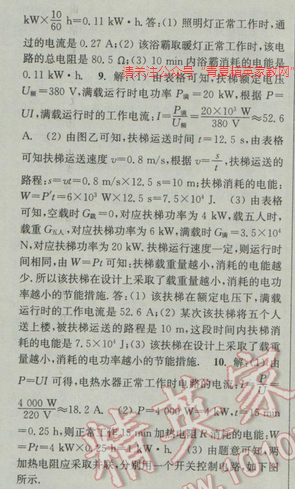 kW×10/60 h=0.11 kW·h.答:(1)照明灯正常工作时,通
过的电流是 0.27 A;(2)该浴霸取暖灯正常工作时,该电
路的总电阻是 80.5 Ω;(3)10 min内浴霸消耗的电能是
0.11 kW·h. 9. 解:(1)由表格可知,扶梯额定电压
U额=380 V,满载运行时功率 P满=20 kW,根据 P=
UI,满载运行时的工作电流:I=P满/U额=20×10³ W/380 V≈52.6
A. (2)由图乙可知,扶梯运送时间 t=12.5 s,由表格
可知扶梯运送速度 v=0.8 m/s,根据 v=s/t,扶梯运送的
路程:s=vt=0.8 m/s×12.5 s=10 m;扶梯消耗的电能:
W=P't=6×10³ W×12.5 s=7.5×10⁴ J. (3)由表格
可知,空载时G载=0,对应扶梯功率为 4 kW,载五人时,
载重G五人,对应扶梯功率为 6 kW,满载时G满=3.5×10⁴
N,对应扶梯功率为 20 kW.扶梯运行速度一定,则运行时
间相同,由 W=Pt 可知:扶梯载重量越小,消耗的电能越
少.所以该扶梯在设计上采取了载重量越小,消耗的电功
率越小的节能措施.答:(1)该扶梯在额定电压下,满载
运行时的工作电流是 52.6 A;(2)某次该扶梯将五个人
送上楼,被扶梯运送的路程是 10 m,这段时间内扶梯消
耗的电能是 7.5×10⁴ J;(3)该扶梯在设计上采取了载重
量越小,消耗的电功率越小的节能措施. 10. 解:(1)由
P=UI 可得,电热水器正常工作时电路的电流:I=P/U=
4 000 W/220 V≈18.2 A. (2)P=4 000 W=4 kW,t=15 min
=0.25 h,则正常工作 15 min 加热电阻 R 消耗的电能:W
=Pt=4 kW×0.25 h=1 kW·h. (3)由题意可知,两
加热电阻应采取并联,分别用一个开关控制,电路如下图
所示.
请关注公众号"菁菁精英家教网"
精英家教网